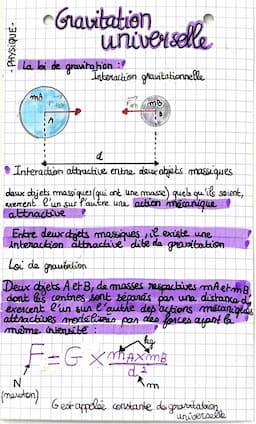 - PHYSIQUE -
Gravitation
universelle
La loi de gravitation :
Interaction gravitationnelle
mA
mB
A
B
d
• Interaction attractive entre deux objets massiques
deux objets massiques (qui ont une masse) quels qu'ils soient,
exercent l'un sur l'autre une action mécanique
attractive
Entre deux objets massiques, il existe une
interaction attractive dite de gravitation
Loi de gravitation
Deux objets A et B, de masses respectives mA et mB
dont les centres sont séparés par une distance d,
exercent l'un sur l'autre des actions mécaniques
attractives modélisées par des forces ayant la
même intensité :
kg
F = G × mA × mB
d²
N
(newton)
m
G est appelée constante de gravitation
universelle